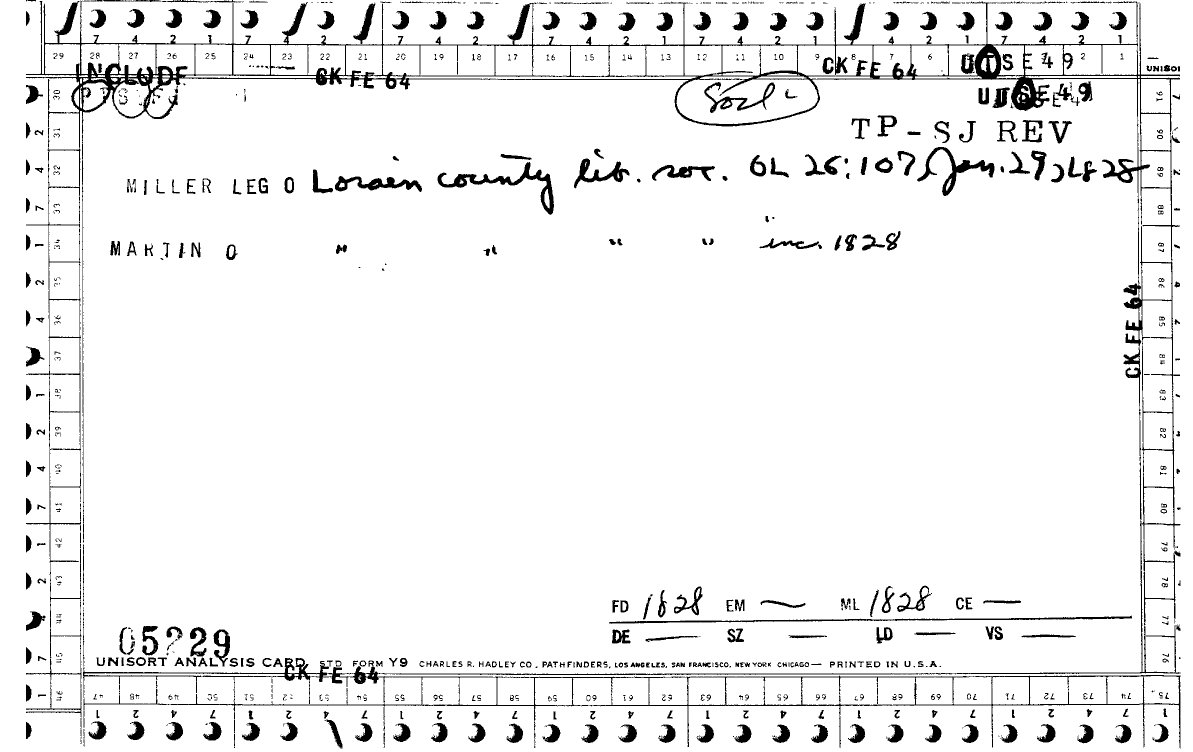 7 4 2 1 7 4 2 1 7 4 2 1 7 4 2 1 7 4 2 1 7 4 2 1 7 4 2 1
29 28 27 26 25 24 22 21 20 19 18 17 16 15 14 13 12 11 10 9 8 7 6 2 1
INCLUDE CK FE 64 CK FE 64 UTSE49 UNISORT
Soc'l UTSE49
TP-SJ REV
MILLER LEG O Lorain county lib. soc. OL 26:107, (Jan. 29, 1828
MARTIN O " " " " inc. 1828
CK FE 64
FD 1828 EM — ML 1828 CE —
DE — SZ — LD — VS —
05229
UNISORT ANALYSIS CARD, STD FORM Y9 CHARLES R. HADLEY CO., PATHFINDERS, LOS ANGELES, SAN FRANCISCO, NEW YORK CHICAGO — PRINTED IN U.S.A.
CK FE 64
47 48 49 50 51 52 53 54 55 56 57 58 59 60 61 62 63 64 65 66 67 68 69 70 71 72 73 74 75
1 2 4 7 1 2 4 7 1 2 4 7 1 2 4 7 1 2 4 7 1 2 4 7 1 2 4 7